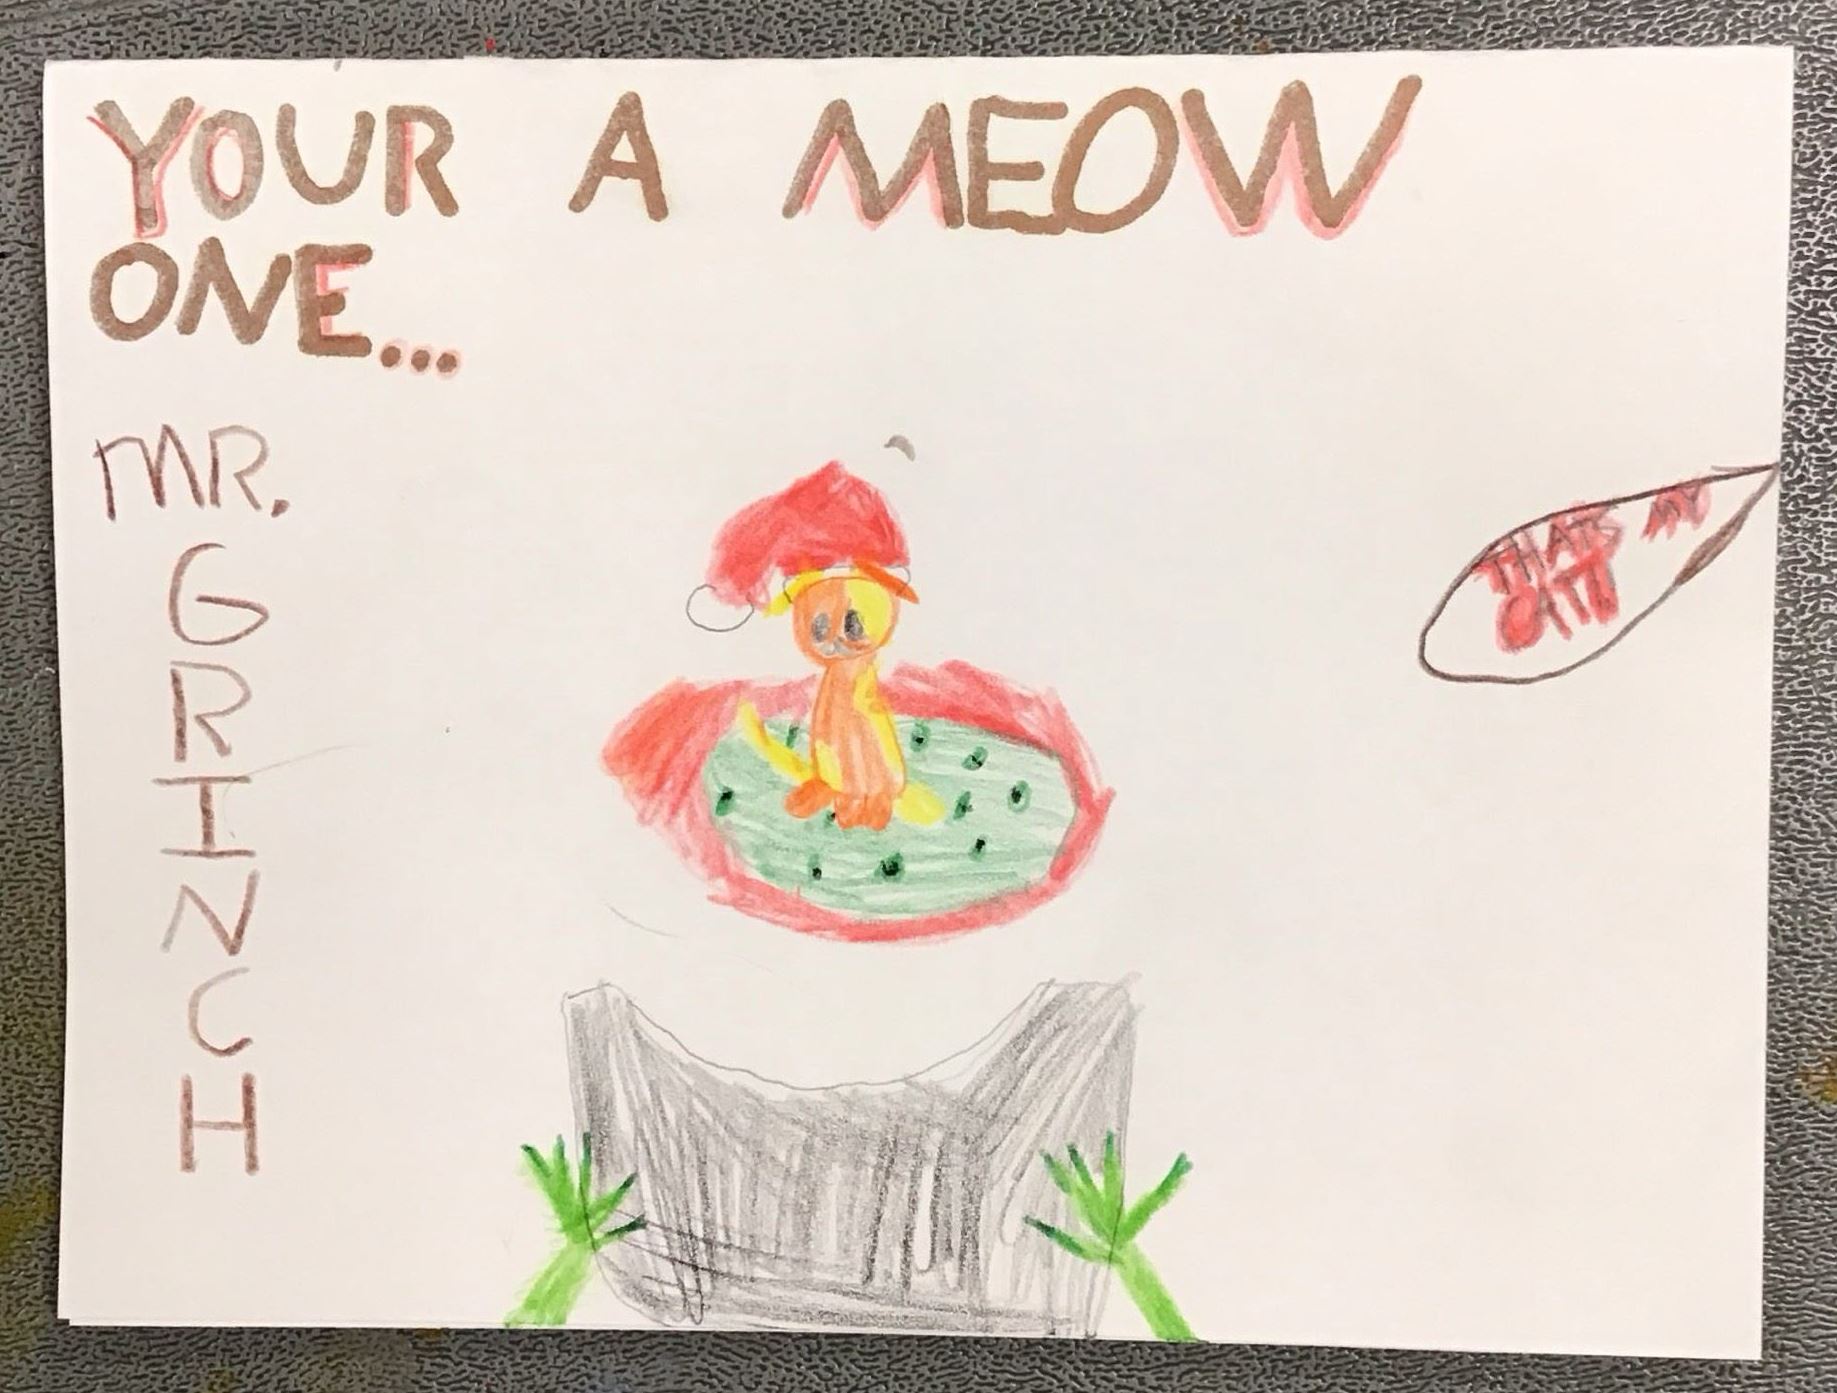 YOUR A MEOW
ONE...
MR.
G
R
I
N
C
H
THATS MY
CAT!!